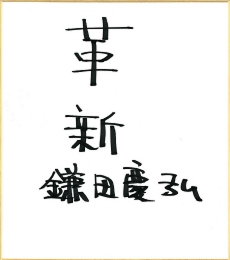 革
新
鎌田慶弘